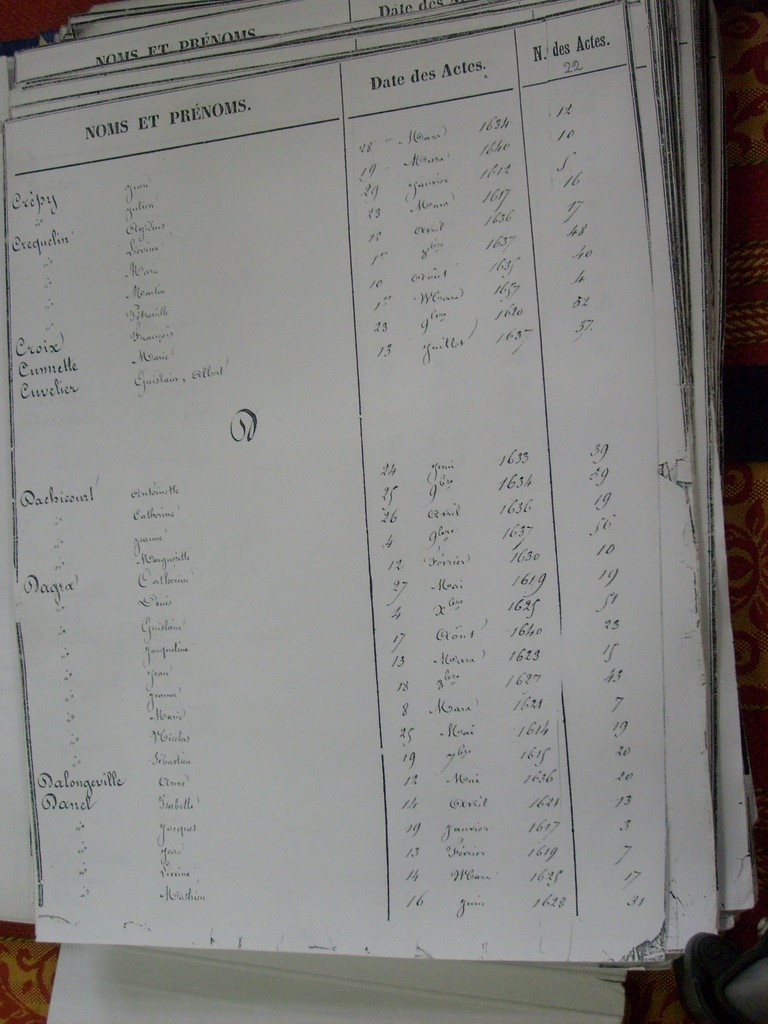 Date des Actes.
NOMS ET PRÉNOMS.
NOMS ET PRÉNOMS. Date des Actes. N. des Actes.
22
Crépy Jean 28 Mars 1634 12
id Julien 19 Mars 1640 10
Crequelin Agidius 29 Janvier 1612 5
id Livine 23 Mars 1617 16
id Marc 12 Avril 1636 17
id Martin 1er 8bre 1637 48
id Pétronille 10 Août 1635 40
Croix François 1er Mars 1657 4
Cunnette Marie 23 9bre 1620 32
Cuvelier Guislain, Albert 13 Juillet 1637 37
D
Dachicourt Antoinette 24 Juin 1633 39
id Catherine 25 9bre 1634 29
id Jeanne 26 Avril 1636 19
id Marguerite 4 9bre 1637 56
Dagra Catherine 12 Février 1630 10
id Denis 27 Mai 1619 19
id Guislain 4 Xbre 1625 51
id Jacqueline 17 Août 1640 23
id Jean 13 Mars 1623 15
id Jeanne 18 8bre 1627 43
id Marie 8 Mars 1621 7
id Nicolas 25 Mai 1614 19
id Sébastien 19 7bre 1615 20
Dalongeville Anne 12 Mai 1636 20
Danel Isabelle 14 Avril 1621 13
id Jacques 19 Janvier 1617 3
id Jean 13 Février 1619 7
id Livine 14 Mars 1625 17
id Mathieu 16 Juin 1628 31